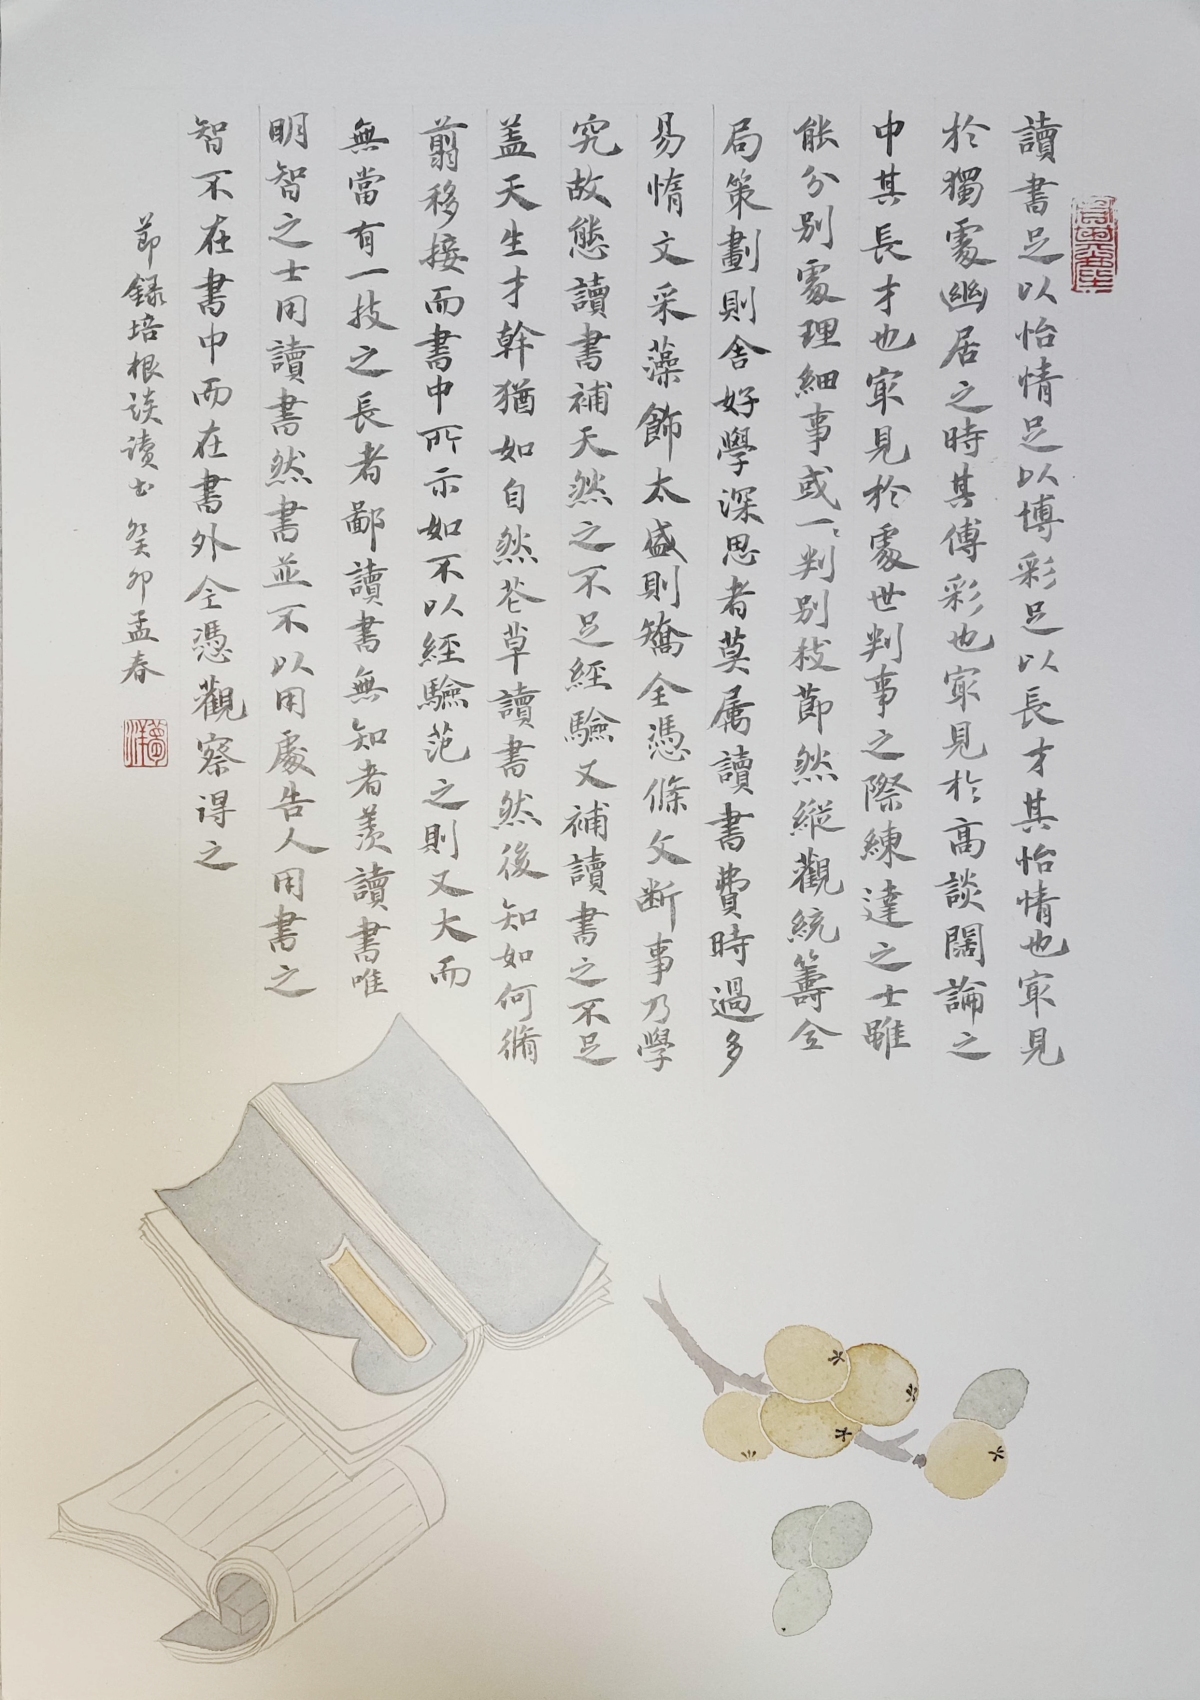 讀書足以怡情足以博彩足以長才其怡情也冣見
於獨處幽居之時其傅彩也冣見於高談闊論之
中其長才也冣見於處世判事之際練達之士雖
能分別處理細事或一〻判別枝節然縱觀統籌全
局策劃則舍好學深思者莫属讀書費時過多
易惰文采藻飾太盛則矯全憑條文断事乃學
究故態讀書補天然之不足經驗又補讀書之不足
盖天生才幹猶如自然花草讀書然後知如何脩
剪移接而書中所示如不以經驗范之則又大而
無當有一技之長者鄙讀書無知者羨讀書唯
明智之士用讀書然書並不以用處告人用書之
智不在書中而在書外全憑觀察得之
節録培根談讀书 癸卯孟春